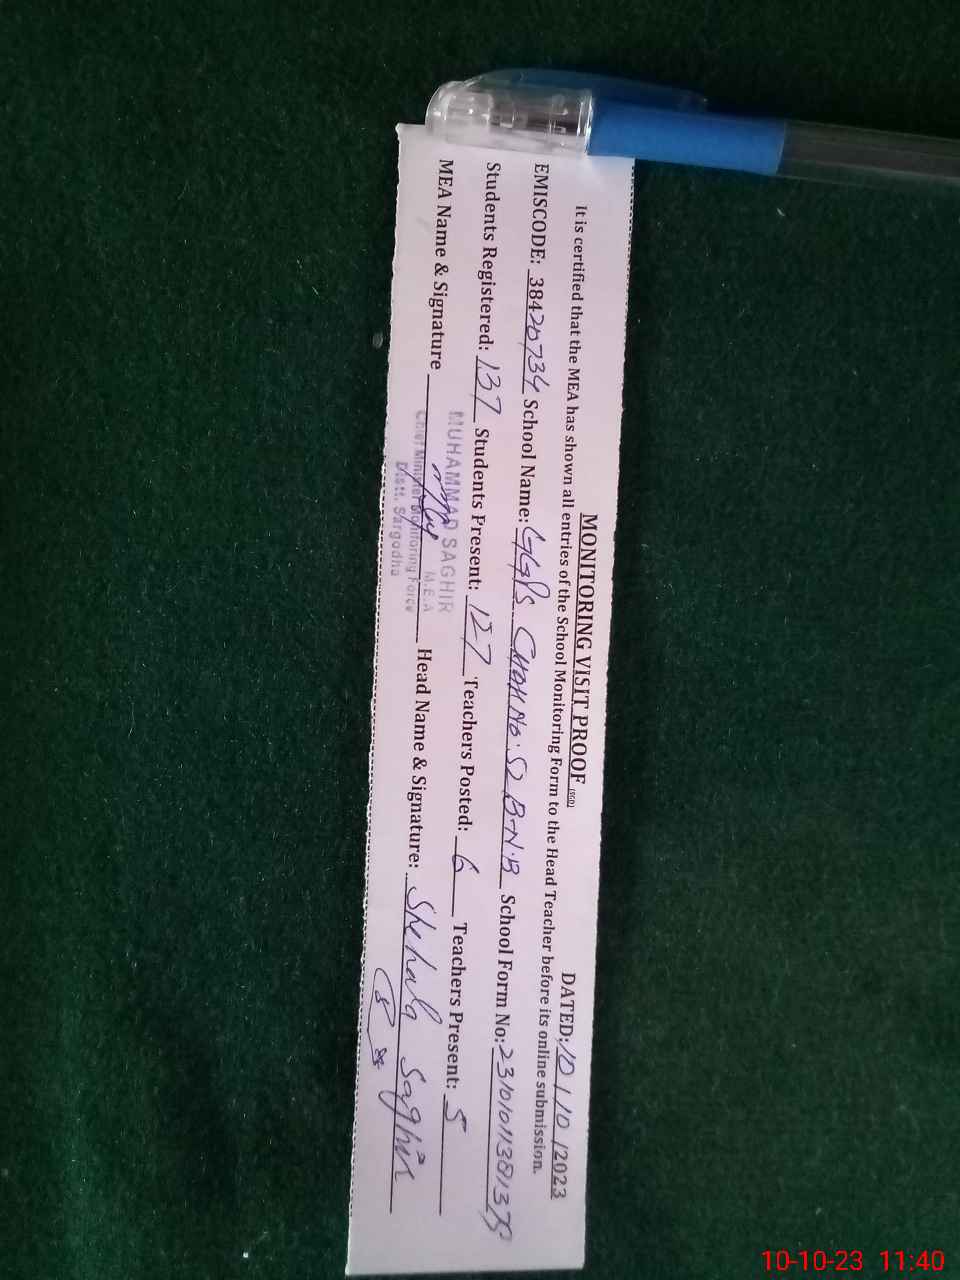 MONITORING VISIT PROOF (SGD) DATED: 10 / 10 /2023
It is certified that the MEA has shown all entries of the School Monitoring Form to the Head Teacher before its online submission.
EMISCODE: 38420734 School Name: GGPS CHAK No: 52 B-N.B School Form No:
Students Registered: 137 Students Present: 127 Teachers Posted: 6 Teachers Present: 5
MEA Name & Signature Head Name & Signature: Shehala Saghir
MUHAMMAD SAGHIR
M.E.A
Chief Minister Monitoring Force
Distt. Sargodha
10-10-23 11:40